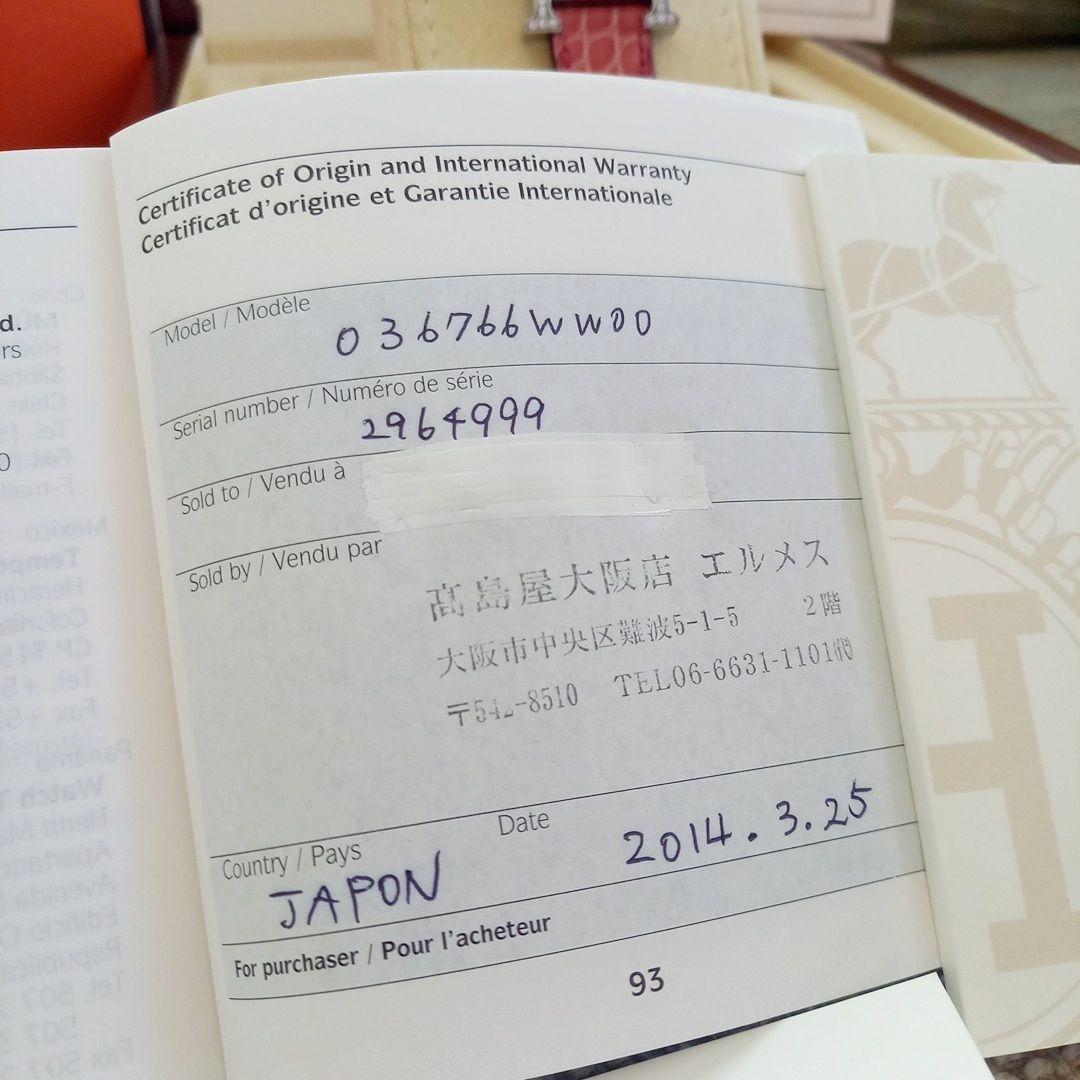 Certificate of Origin and International Warranty
Certificat d'origine et Garantie Internationale
Model / Modèle
036766WW00
Serial number / Numéro de série
2964999
Sold to / Vendu à
Sold by / Vendu par
髙島屋大阪店 エルメス
大阪市中央区難波5-1-5 2階
〒542-8510 TEL06-6631-1101㈹
Country / Pays
Date
JAPON
2014.3.25
For purchaser / Pour l'acheteur
93
d.
rs
0
Chile
Chile
Tel.
E-mail
Mexico
CP
Tel. +5
Fax +5
Panama
Watch T
Henri Ma
Apartado
Avenida
Edificio
Republica
Tel. 507
507
Fax 507
H